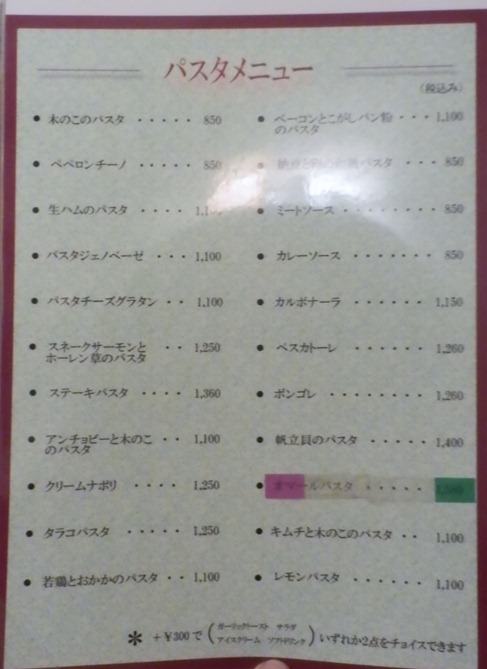 パスタメニュー
(税込み)
● 木のこのパスタ ・・・・・ 850
● ペペロンチーノ ・・・・・ 850
● 生ハムのパスタ ・・・・
● パスタジェノベーゼ ・・・ 1,100
● パスタチーズグラタン ・・ 1,100
● スネークサーモンと
ホーレン草のパスタ ・・ 1,250
● ステーキパスタ ・・・・ 1,360
● アンチョビーと木のこ
のパスタ ・・ 1,100
● クリームナポリ ・・・・ 1,250
● タラコパスタ ・・・・・ 1,250
● 若鶏とおかかのパスタ ・・ 1,100
● ベーコンとこがしパン粉 ・・・ 1,100
のパスタ
パスタ ・・・ 850
● ミートソース ・・・・・・ 850
● カレーソース ・・・・・・・ 850
● カルボナーラ ・・・・・・ 1,150
● ペスカトーレ ・・・・・・ 1,260
● ボンゴレ ・・・・・・・ 1,260
● 帆立貝のパスタ ・・・・・ 1,400
● オマールパスタ ・・・・・
● キムチと木のこのパスタ ・・ 1,100
● レモンパスタ ・・・・・・ 1,100
* +¥300で ( ガーリックトースト サラダ
アイスクリーム ソフトドリンク ) いずれか2点をチョイスできます